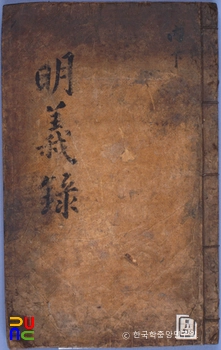 明義錄
© 한국학중앙연구원